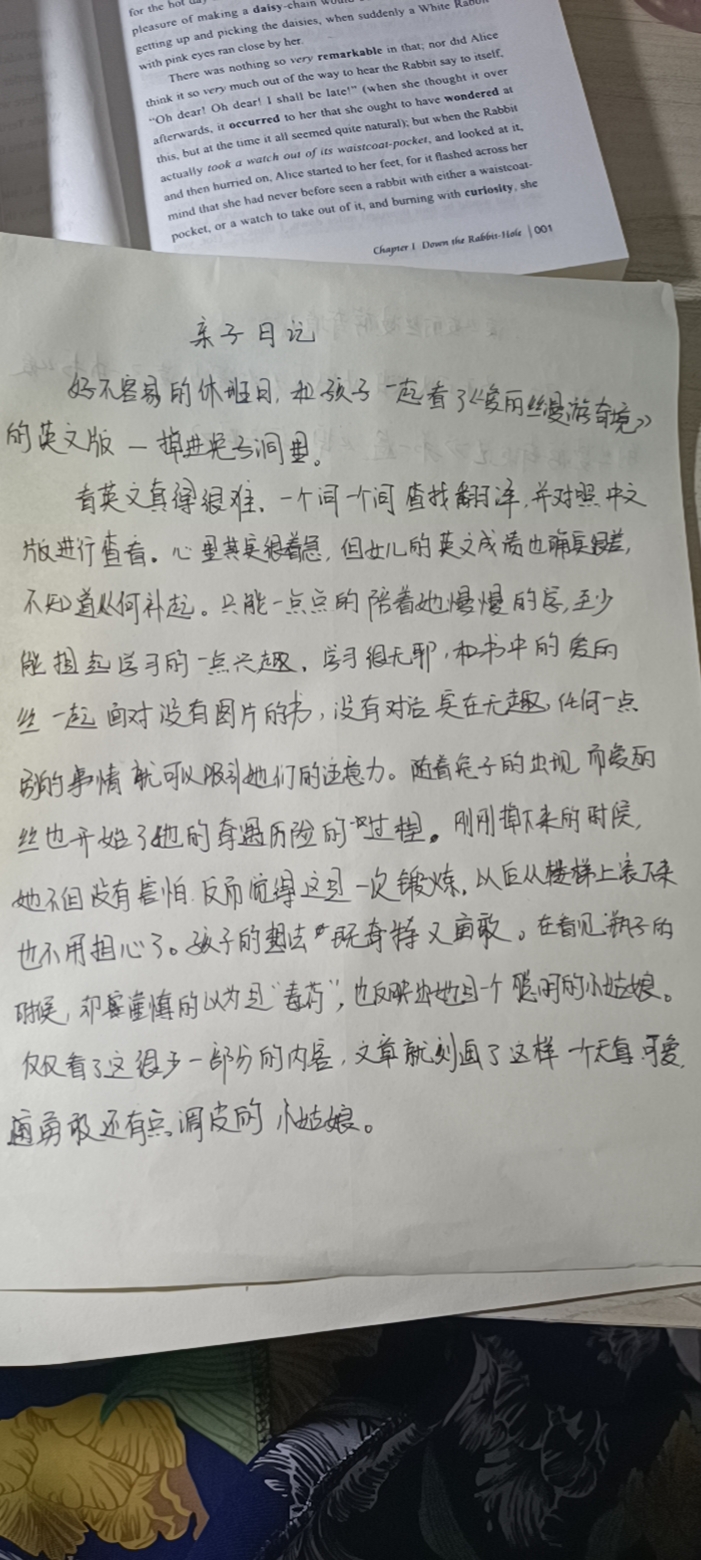 for the hot day
pleasure of making a daisy-chain would
getting up and picking the daisies, when suddenly a White Rabbit
with pink eyes ran close by her.
There was nothing so very remarkable in that; nor did Alice
think it so very much out of the way to hear the Rabbit say to itself,
“Oh dear! Oh dear! I shall be late!” (when she thought it over
afterwards, it occurred to her that she ought to have wondered at
this, but at the time it all seemed quite natural); but when the Rabbit
actually took a watch out of its waistcoat-pocket, and looked at it,
and then hurried on, Alice started to her feet, for it flashed across her
mind that she had never before seen a rabbit with either a waistcoat-
pocket, or a watch to take out of it, and burning with curiosity, she
Chapter I Down the Rabbit-Hole | 001
亲子日记
好不容易的休班日，和孩子一起看了《爱丽丝漫游奇境》
的英文版—掉进兔子洞里。
看英文真得很难，一个词一个词查找翻译，并对照中文
版进行查看。心里其实很着急，但女儿的英文成绩也确实很差，
不知道从何补起。只能一点点的陪着她慢慢的学，至少
能担起学习的一点兴趣，学习很无聊，和书中的爱丽
丝一起面对没有图片的书，没有对话实在无趣，任何一点
别的事情就可以吸引她们的注意力。随着兔子的出现，而爱丽
丝也开始了她的奇遇历险的过程。刚刚掉下来的时候，
她不但没有害怕，反而觉得这是一次锻炼，以后从楼梯上滚下来
也不用担心了。孩子的想法既奇特又勇敢。在看见瓶子的
时候，却谨慎的以为是“毒药”，也反映出她是一个聪明的小姑娘。
仅仅看了这很少一部分的内容，文章就刻画了这样一个天真，可爱，
勇敢还有点调皮的小姑娘。